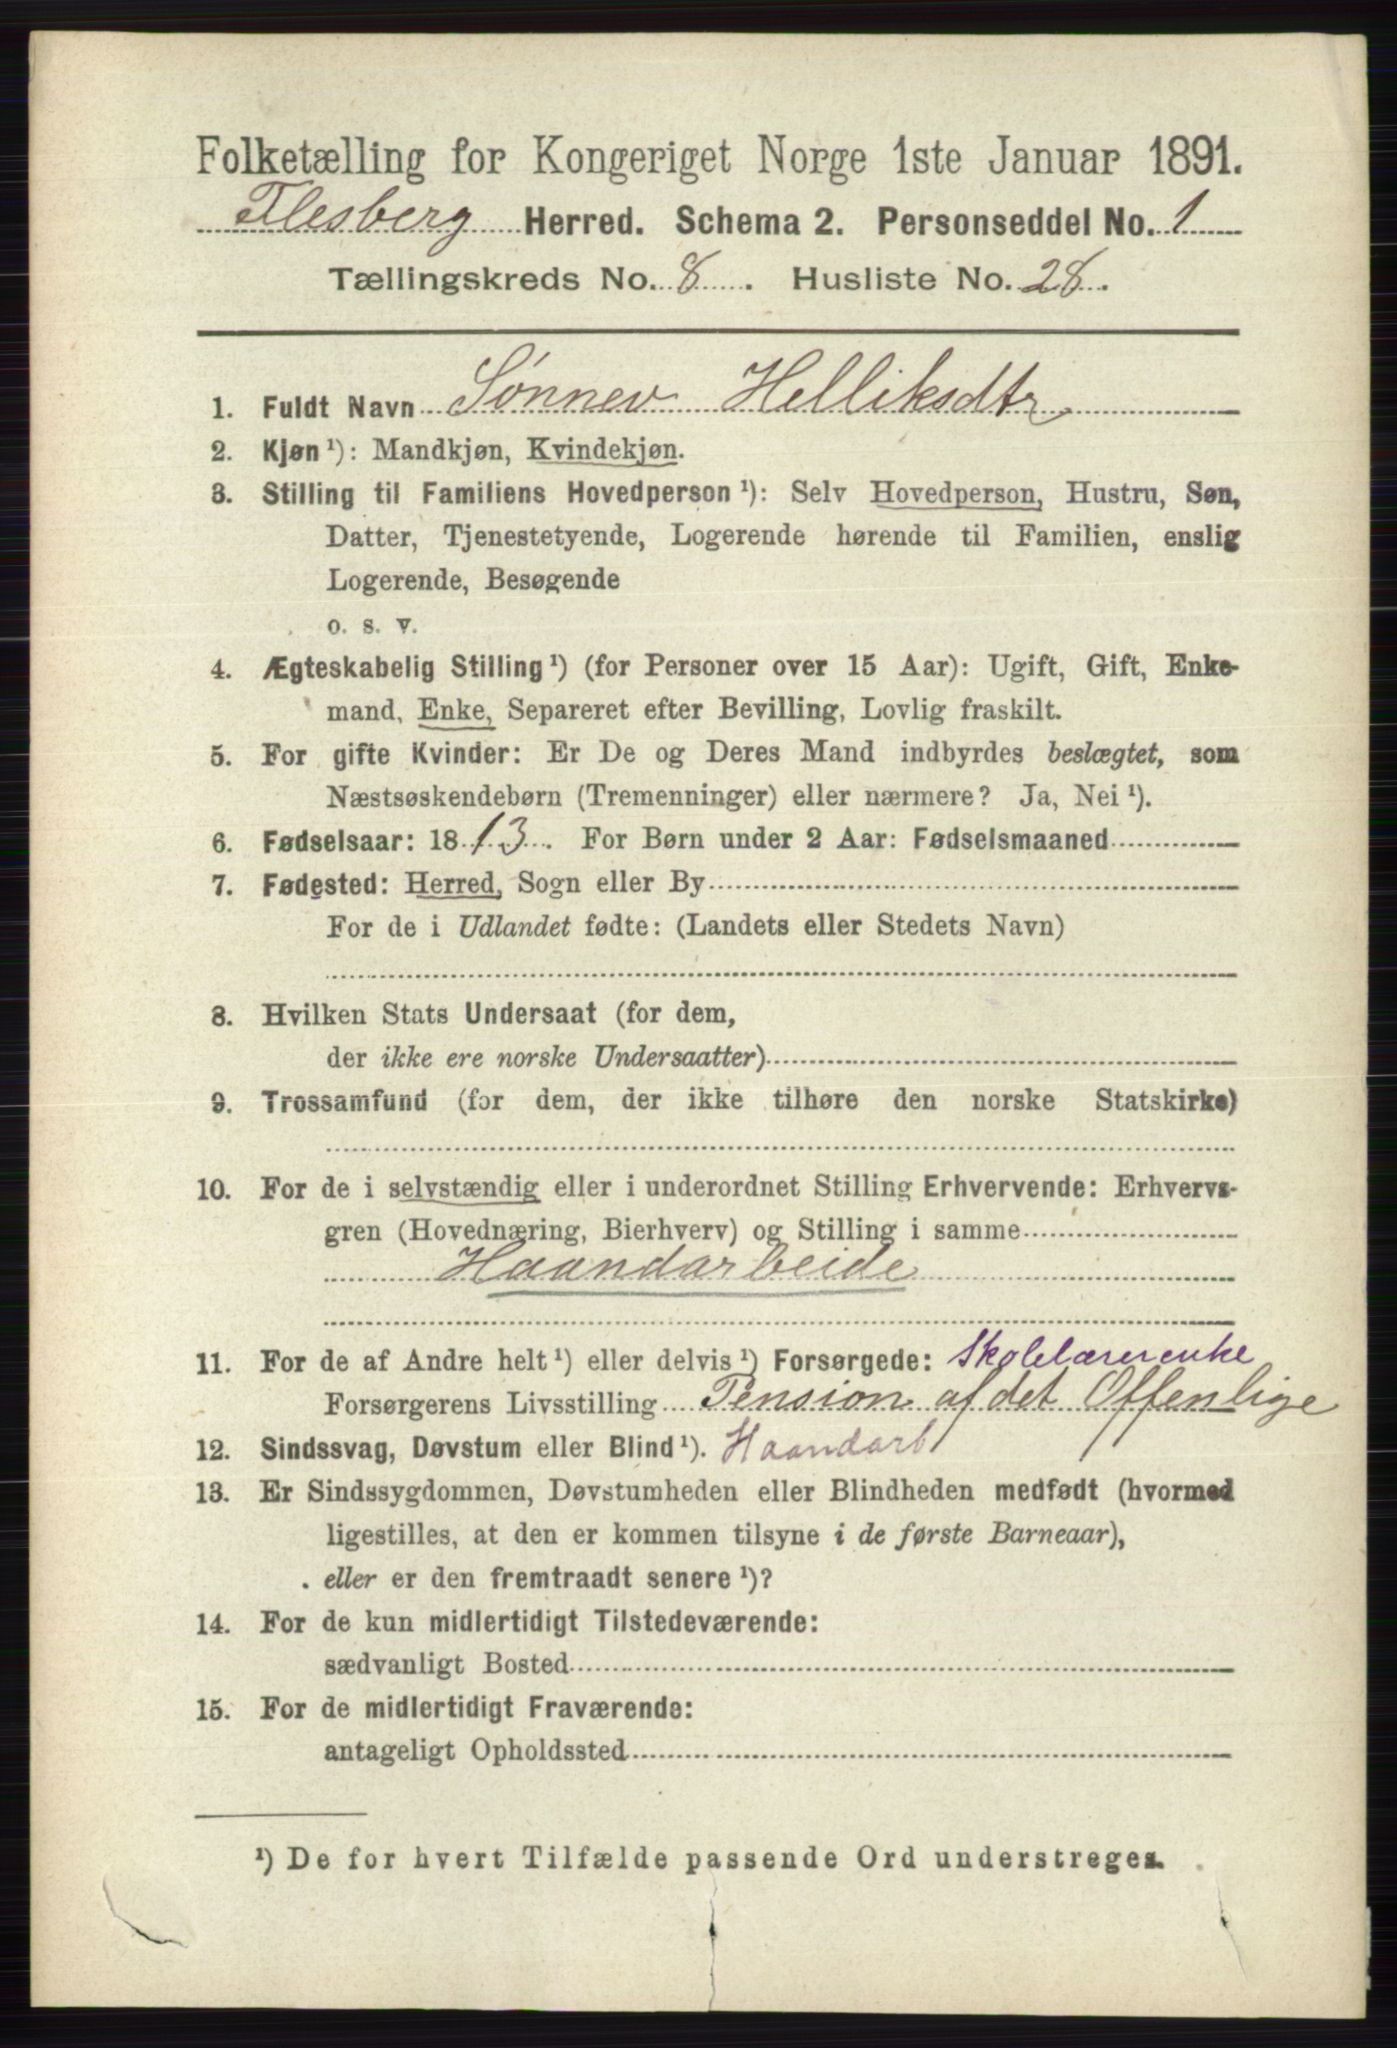 Folketælling for Kongeriget Norge 1ste Januar 1891.
Flesberg Herred. Schema 2. Personseddel No. 1
Tællingskreds No. 8. Husliste No. 28.
1. Fuldt Navn Sønnev Helliksdtr
2. Kjøn ¹): Mandkjøn, Kvindekjøn.
3. Stilling til Familiens Hovedperson ¹): Selv Hovedperson, Hustru, Søn,
Datter, Tjenestetyende, Logerende hørende til Familien, enslig
Logerende, Besøgende
o. s. v.
4. Ægteskabelig Stilling ¹) (for Personer over 15 Aar): Ugift, Gift, Enke-
mand, Enke, Separeret efter Bevilling, Lovlig fraskilt.
5. For gifte Kvinder: Er De og Deres Mand indbyrdes beslægtet, som
Næstsøskendebørn (Tremenninger) eller nærmere? Ja, Nei ¹).
6. Fødselsaar: 1813. For Børn under 2 Aar: Fødselsmaaned
7. Fødested: Herred, Sogn eller By
For de i Udlandet fødte: (Landets eller Stedets Navn)
8. Hvilken Stats Undersaat (for dem,
der ikke ere norske Undersaatter)
9. Trossamfund (for dem, der ikke tilhøre den norske Statskirke)
10. For de i selvstændig eller i underordnet Stilling Erhvervende: Erhvervs-
gren (Hovednæring, Bierhverv) og Stilling i samme
Haandarbeide
11. For de af Andre helt ¹) eller delvis ¹) Forsørgede: Skolelærerenke
Forsørgerens Livsstilling Pension af det Offenlige
12. Sindssvag, Døvstum eller Blind ¹). Haandarb
13. Er Sindssygdommen, Døvstumheden eller Blindheden medfødt (hvormed
ligestilles, at den er kommen tilsyne i de første Barneaar),
eller er den fremtraadt senere ¹)?
14. For de kun midlertidigt Tilstedeværende:
sædvanligt Bosted
15. For de midlertidigt Fraværende:
antageligt Opholdssted
¹) De for hvert Tilfælde passende Ord understreges.